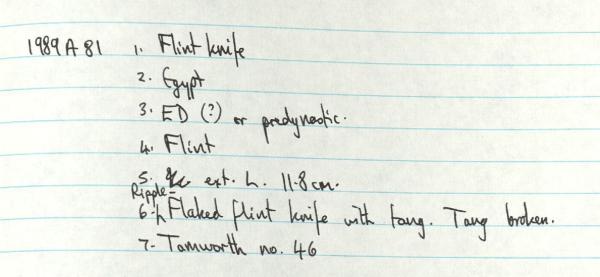 1989 A 81 1. Flint knife
2. Egypt
3. ED (?) or predynastic.
4. Flint
5. ext. L. 11.8 cm.
Ripple-
6. Flaked flint knife with tang. Tang broken.
7- Tamworth no. 46